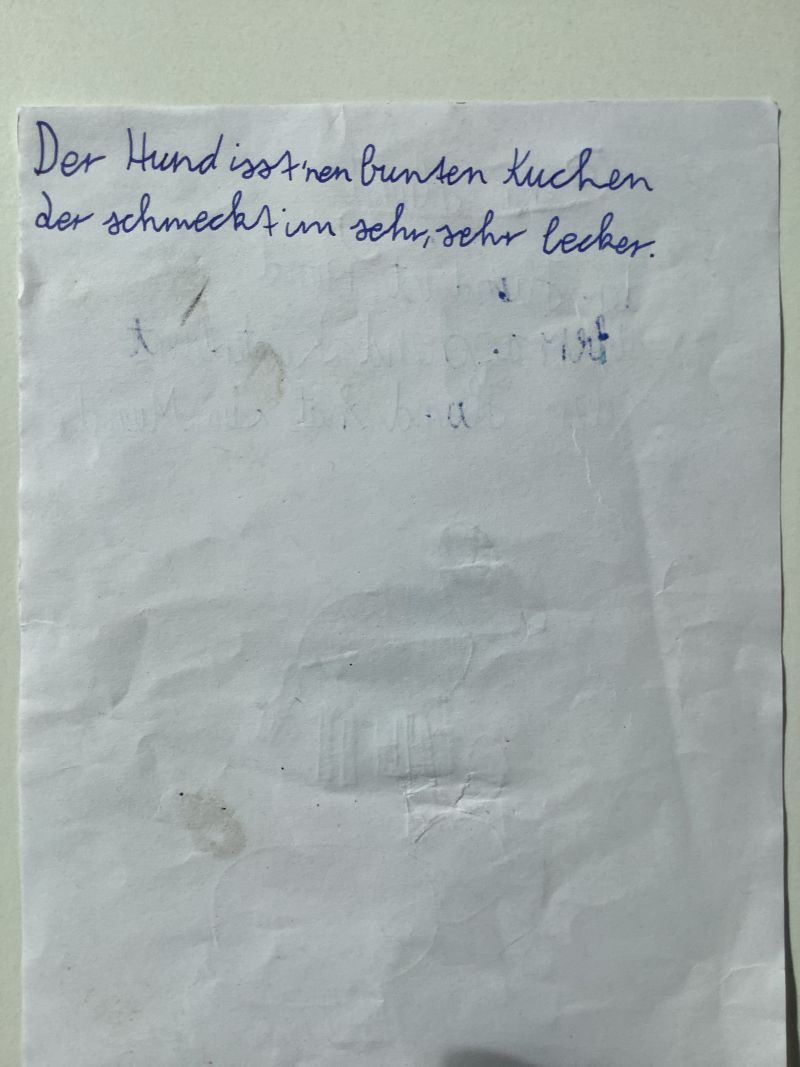 Der Hund isst 'nen bunten Kuchen
der schmeckt im sehr, sehr lecker.